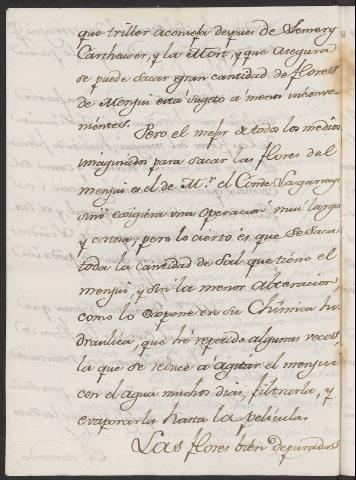 que triller aconseja despues de Lemery
Cartheuser, y la Mort, y que asegura
se puede sacar gran cantidad de flores
de Menjui está sugeto á menos inconve-
nientes.
Pero el mejor de todos los medios
imaginados para sacar las flores del
menjui es el de Mr. el Conde Lagaraye
sino exigiera una operacion mui larga
y costosa, pero lo cierto es que se saca
toda la cantidad de sal, que tiene el
menjui, y sin la menor alteracion
como lo expone en su Chîmica hi-
draulica, que hé repetido algunas veces,
la que se reduce á agitar el menjui
con el agua muchos dias, filtrarla, y
evaporarla hasta la pelicula.
Las flores bien depuradas